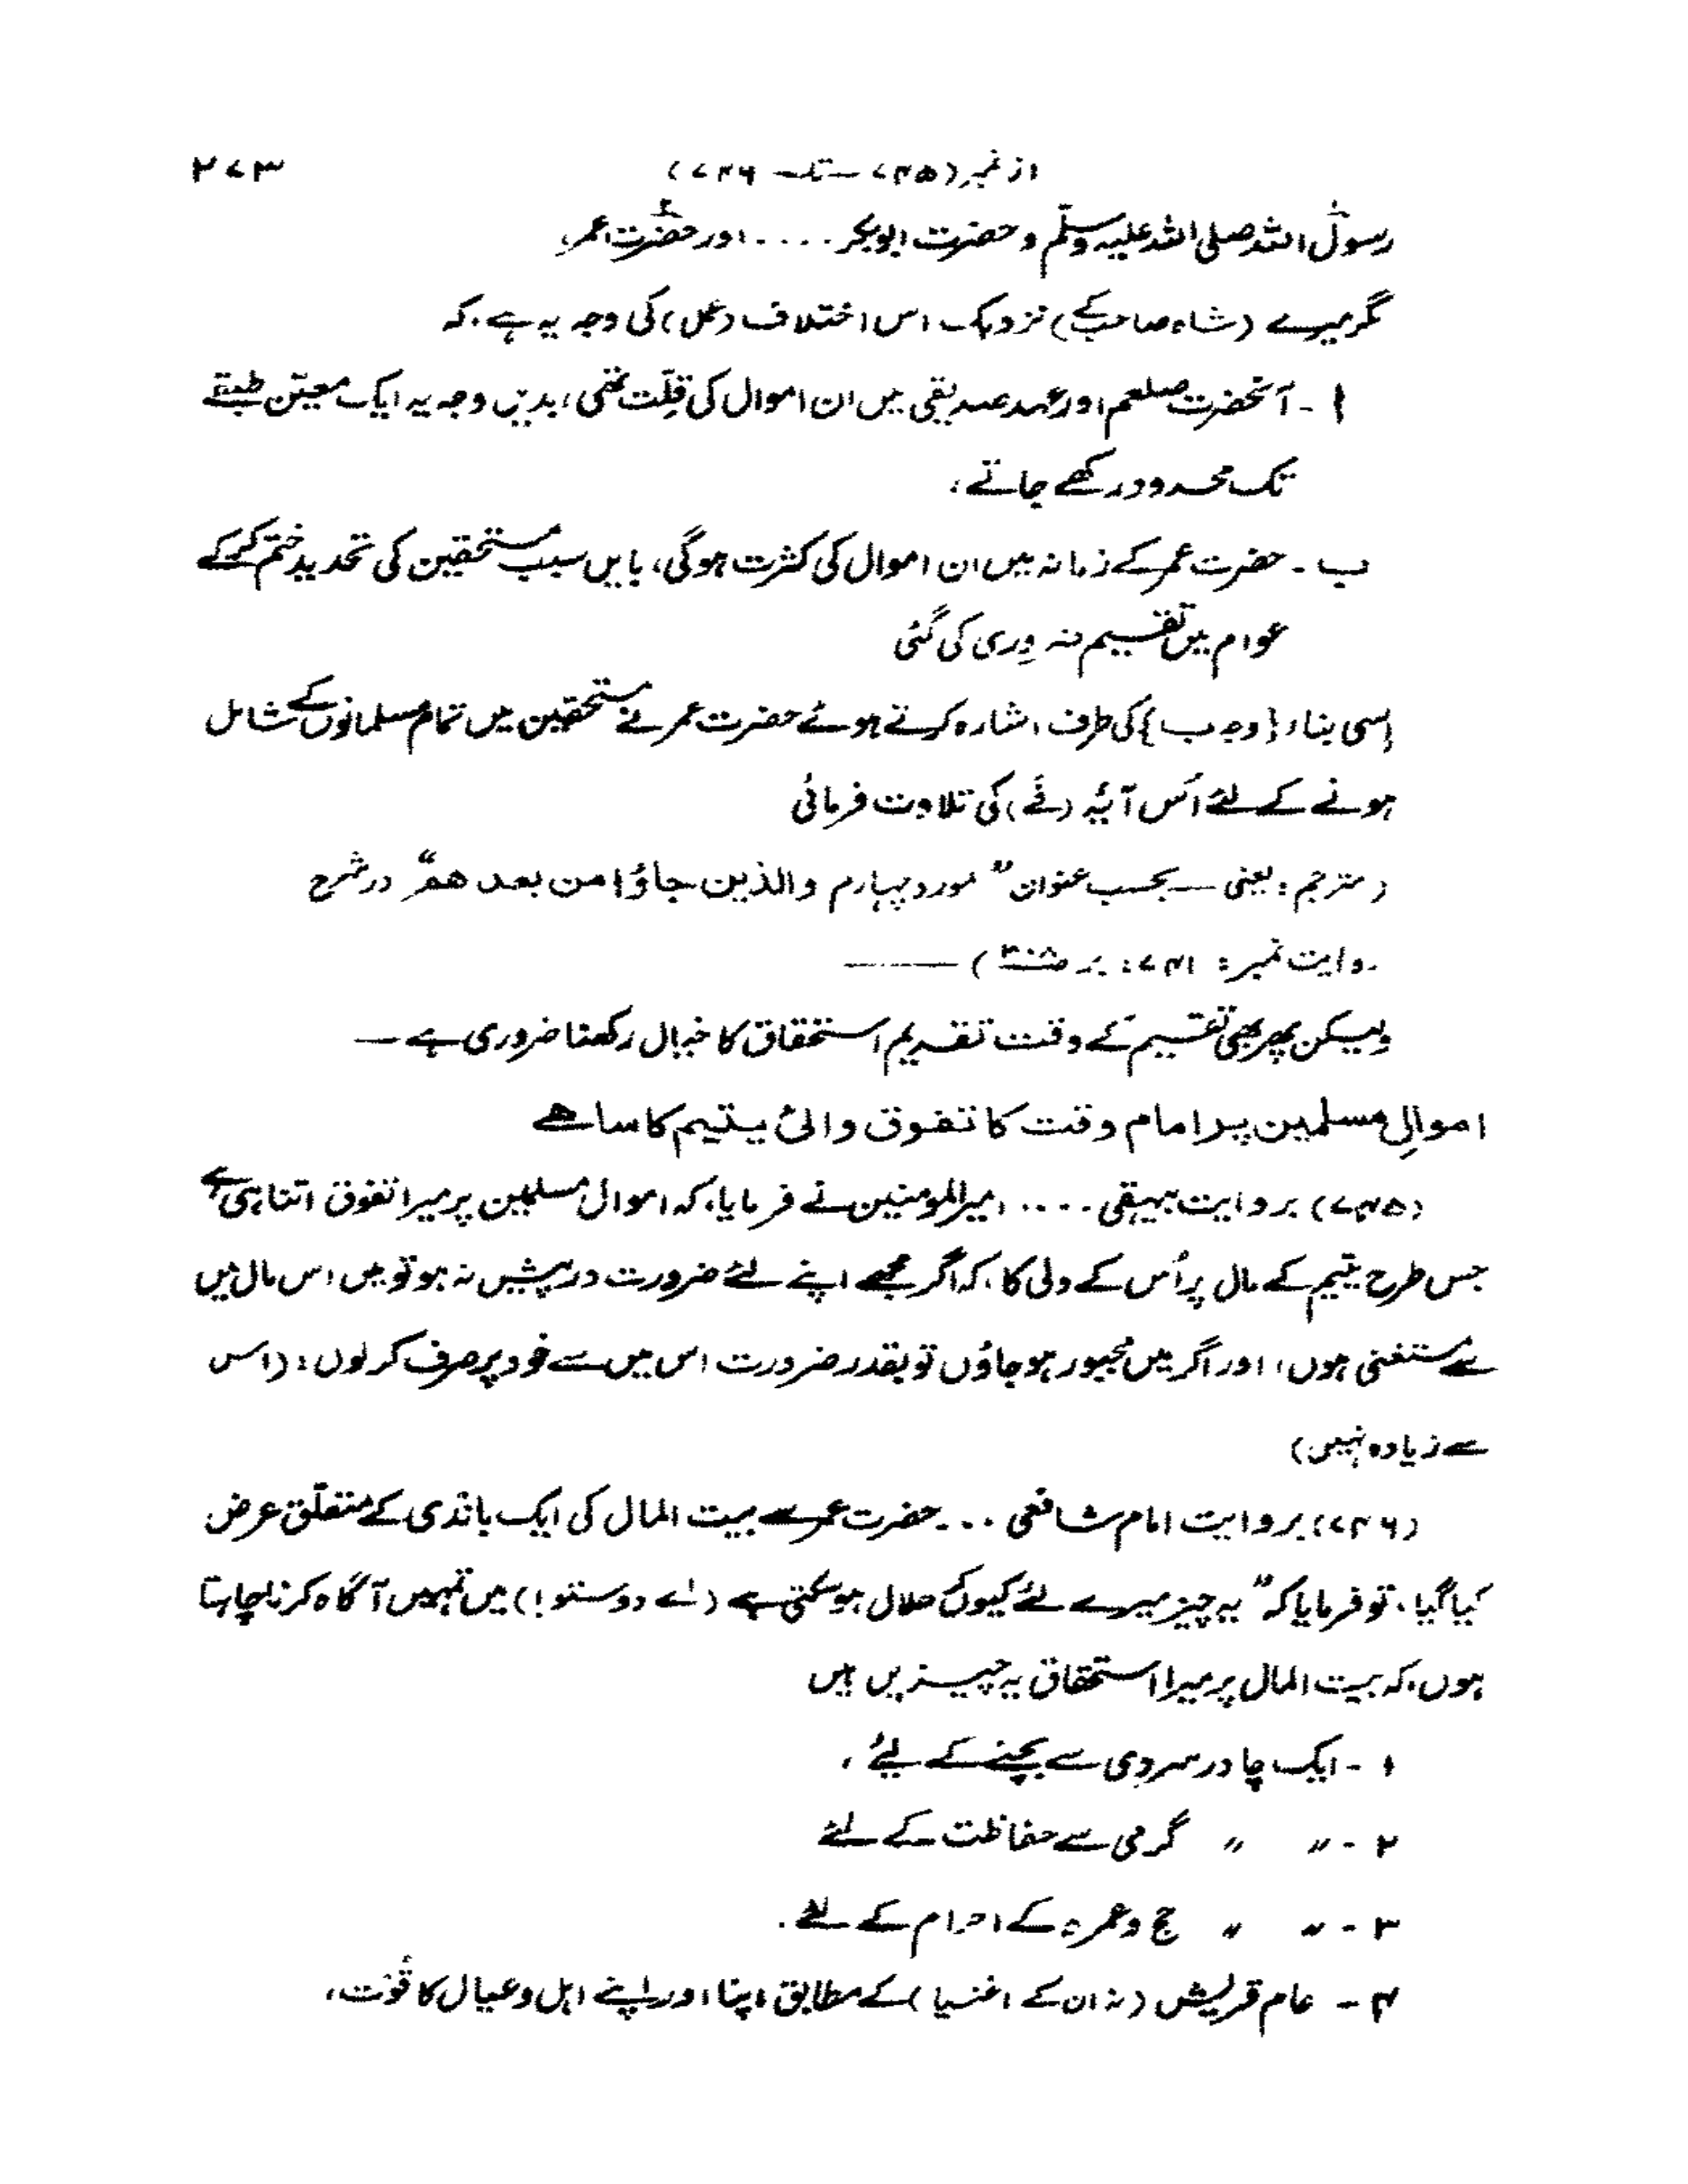 از نمبر (۷۴۵ — تک — ۷۴۶) ۲۷۳
رسولؐ اللہ صلی اللہ علیہ وسلّم و حضرت ابوبکر .... اور حضرت عمر
مگر میرے (شاہ صاحب کے) نزدیک اس اختلاف (عمل) کی وجہ یہ ہے، کہ
ا - آنحضرت صلعم اور عہد صدیقی میں ان اموال کی قلّت تھی، بدیں وجہ یہ ایک معیّن طبقے
تک محدود رکھے جاتے،
ب - حضرت عمر کے زمانہ میں ان اموال کی کثرت ہوگی، بایں سبب مستحقین کی تحدید ختم کر کے
عوام میں تقسیم ضروری کی گئی
اِسی بناء {وجہ ب} کی طرف اشارہ کرتے ہوئے حضرت عمر نے مستحقین میں تمام مسلمانوں کے شامل
ہونے کے لئے اُس آیۂ (فَے) کی تلاوت فرمائی
(مترجم: یعنی — بحسب عنوان "مورد چہارم والذین جاؤا من بعد ھم" در شرح
روایت نمبر: ۷۴۱: بر ) ———
ولیکن پھر بھی تقسیم کے وقت تقدیم استحقاق کا خیال رکھنا ضروری ہے —
اموالِ مسلمین پر امام وقت کا تفوق والئ یتیم کا سا ہے
(۷۴۵) بروایت بیہقی .... امیر المومنین نے فرمایا، کہ اموال مسلمین پر میرا تفوق اتنا ہی ہے
جس طرح یتیم کے مال پر اُس کے ولی کا، کہ اگر مجھے اپنے لئے ضرورت درپیش نہ ہو تو میں اس مال میں
سے مستغنی ہوں، اور اگر میں مجبور ہو جاؤں تو بقدر ضرورت اس میں سے خود پر صرف کر لوں: (اس
سے زیادہ نہیں)
(۷۴۶) بروایت امام شافعی ... حضرت عمر سے بیت المال کی ایک باندی کے متعلّق عرض
کیا گیا، تو فرمایا کہ "یہ چیز میرے لئے کیوں کر حلال ہو سکتی ہے (اے دوستو!) میں تمہیں آگاہ کرنا چاہتا
ہوں، کہ بیت المال پر میرا استحقاق یہ چیزیں ہیں
۱ - ایک چادر سردی سے بچنے کے لیئے،
۲ - 〃 〃 گرمی سے حفاظت کے لئے
۳ - 〃 〃 حج و عمرہ کے احرام کے لئے.
۴ - عام قریش (نہ ان کے اغنیا) کے مطابق اپنا اور اپنے اہل و عیال کا قُوْت،